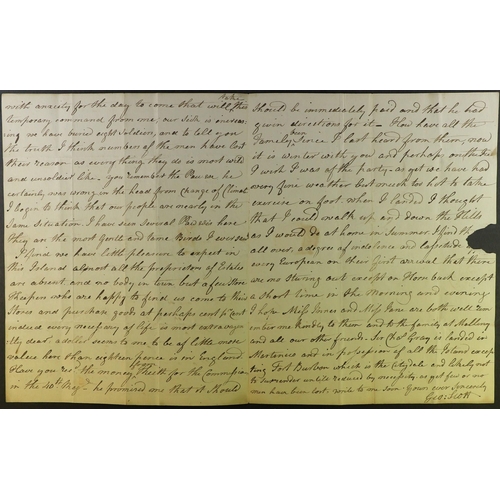 take
with anxiety for the day to come that will this
temporary command from me; our sick is increas
ing we have buried eight Soldiers, and to tell you
the truth I think numbers of the men have lost
their reason as everything they do is most wild
and unsoldier like. you remember the
certainly was wrong in the head from change of Climate
I begin to think that our people are nearly in the
Same situation. I have seen several here
they are the most gentle and tame Birds I ever saw
I find we have little pleasure to expect in
this Island almost all the proprietors of Estates
are absent and no body in town but a few Store
Keepers who are happy to find us come to their
Stores and purchase goods at perhaps cent p Cent
indeed every necessary of life is most extrava
ly dear, a dollar seems to me to be of little more
value here than eighteen pence is in England.
Have you rec'd the money of Keith for the Commission
in the 40th Reg't he promised me that it should
should be immediately paid and that he had
given directions for it — How have all the
Family been since I last heard from them, now
it is winter with you and perhaps on the
I wish I was of the party. as yet we have had
very fine weather but much too hot to take
exercise on foot when I landed I thought
that I could walk up and down the Hills
as I would do at home in Summer. I find th
all over. a degree of indolence and
every European on their first arrival that there
are no stiring out except on Horseback except
a short time in the morning and evening
I hope Miss Janes and Miss Jane are both well rem
ember me kindly to them and to the family at
and all our other friends. Sir Cha's Gray is landed in
Martenico and in possession of all the Island excep
ting Fort Burbon which is the Citydale and likely not
to Surrender until reduced by necessity, as yet few or no
men have been lost. write to me soon. yours ever sincerely
Geo: Scott